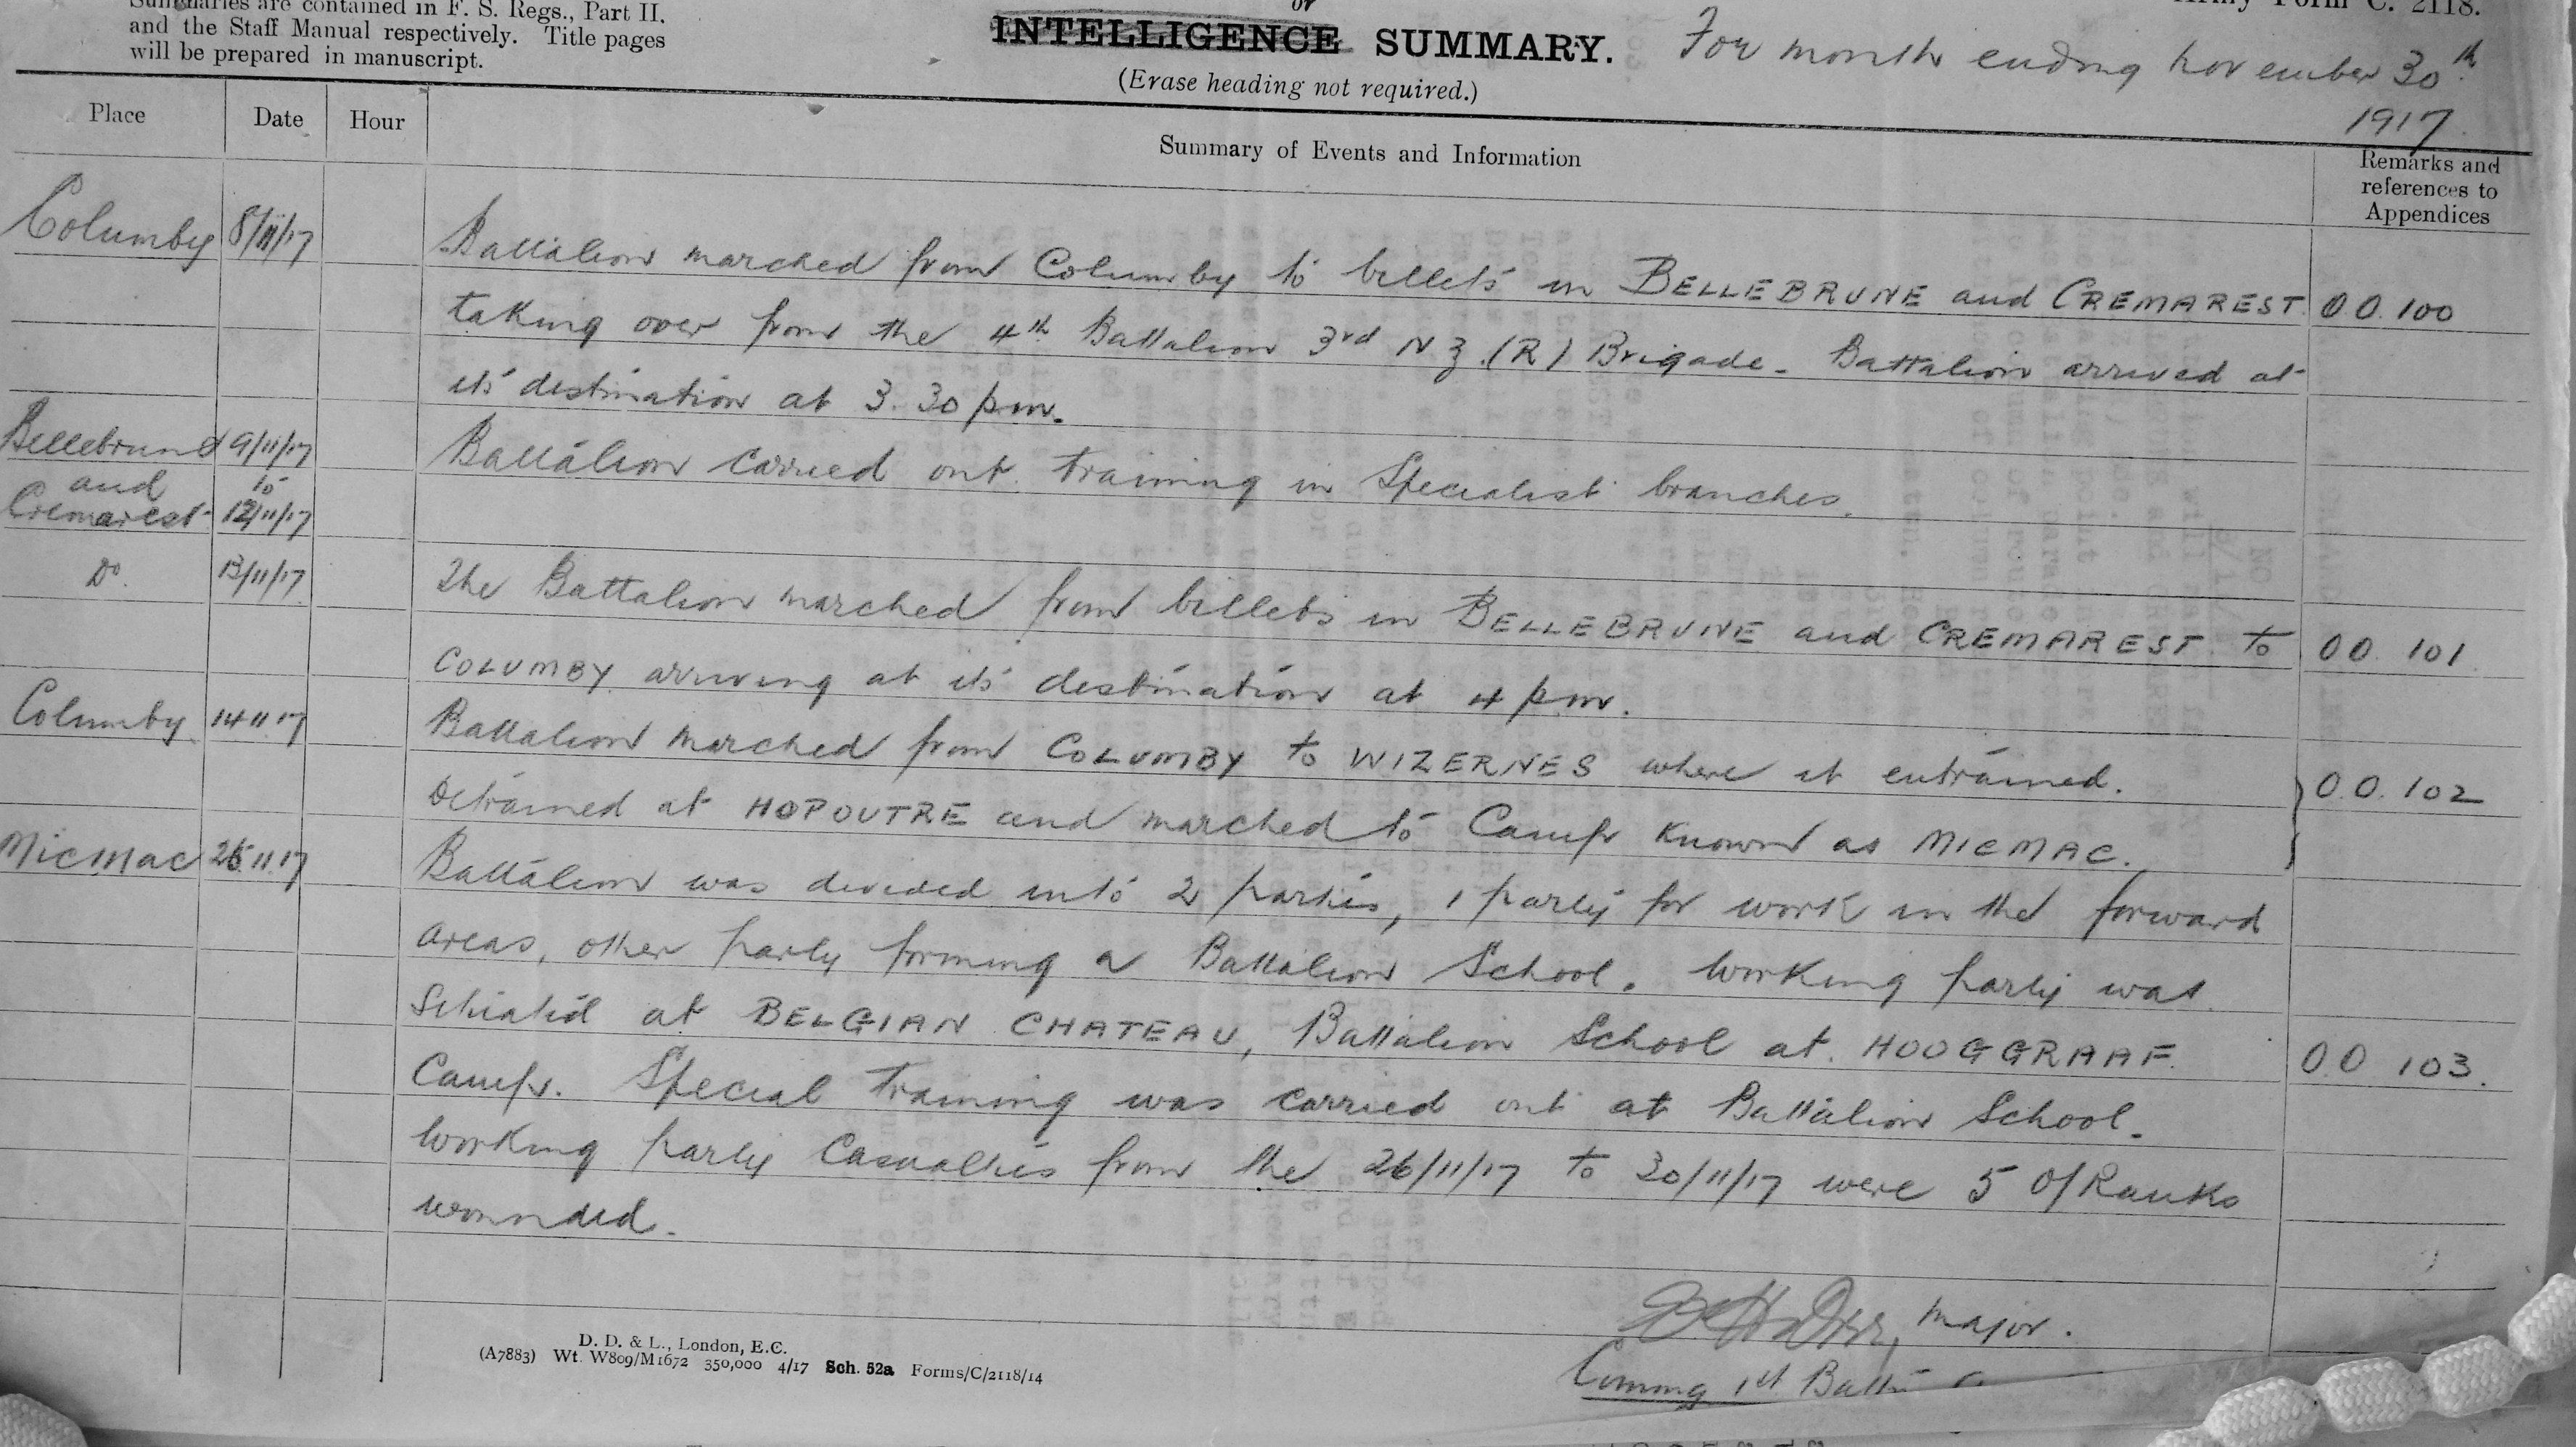 Summaries are contained in F. S. Regs., Part II.
and the Staff Manual respectively. Title pages
will be prepared in manuscript.
or
INTELLIGENCE SUMMARY.
(Erase heading not required.)
Army Form C. 2118.
For month ending November 30th
1917.
Place Date Hour Summary of Events and Information Remarks and
references to
Appendices
Columby 8/11/17 Battalion marched from Columby to billets in BELLEBRUNE and CREMAREST. O.O. 100
taking over from the 4th Battalion 3rd N Z (R) Brigade. Battalion arrived at
its destination at 3.30 pm.
Bellebrune 9/11/17 Battalion carried out training in Specialist branches.
and to
Cremarest 12/11/17
Do. 13/11/17 The Battalion marched from billets in BELLEBRUNE and CREMAREST to O O 101
COLUMBY arriving at its destination at 4 pm.
Columby 14 11 17 Battalion marched from COLUMBY to WIZERNES where it entrained. O.O. 102
Detrained at HOPOUTRE and marched to Camp known as MICMAC.
MicMac 26 11 17 Battalion was divided into 2 parties, 1 party for work in the forward
areas, other party forming a Battalion School. Working party was
situated at BELGIAN CHATEAU, Battalion School at HOOGGRAAF. O.O 103.
Camp. Special Training was carried out at Battalion School.
Working party Casualties from the 26/11/17 to 30/11/17 were 5 O/Ranks
wounded.
Major.
Commg 1st Battn
D. D. & L., London, E.C.
(A7883) Wt. W809/M1672 350,000 4/17 Sch. 52a Forms/C/2118/14